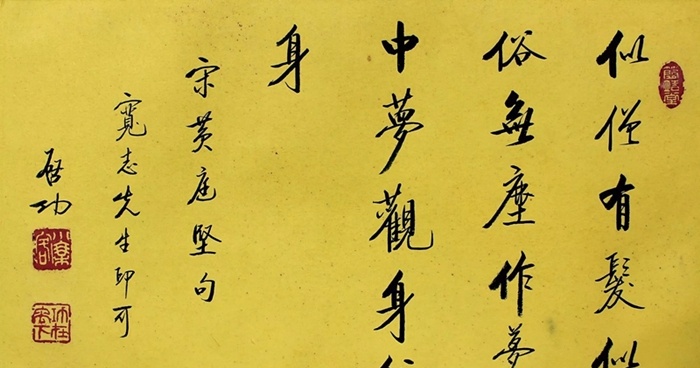 似僧有髮似
俗無塵作夢
中夢觀身
身
宋黃庭堅句
寬志先生印可
啓功